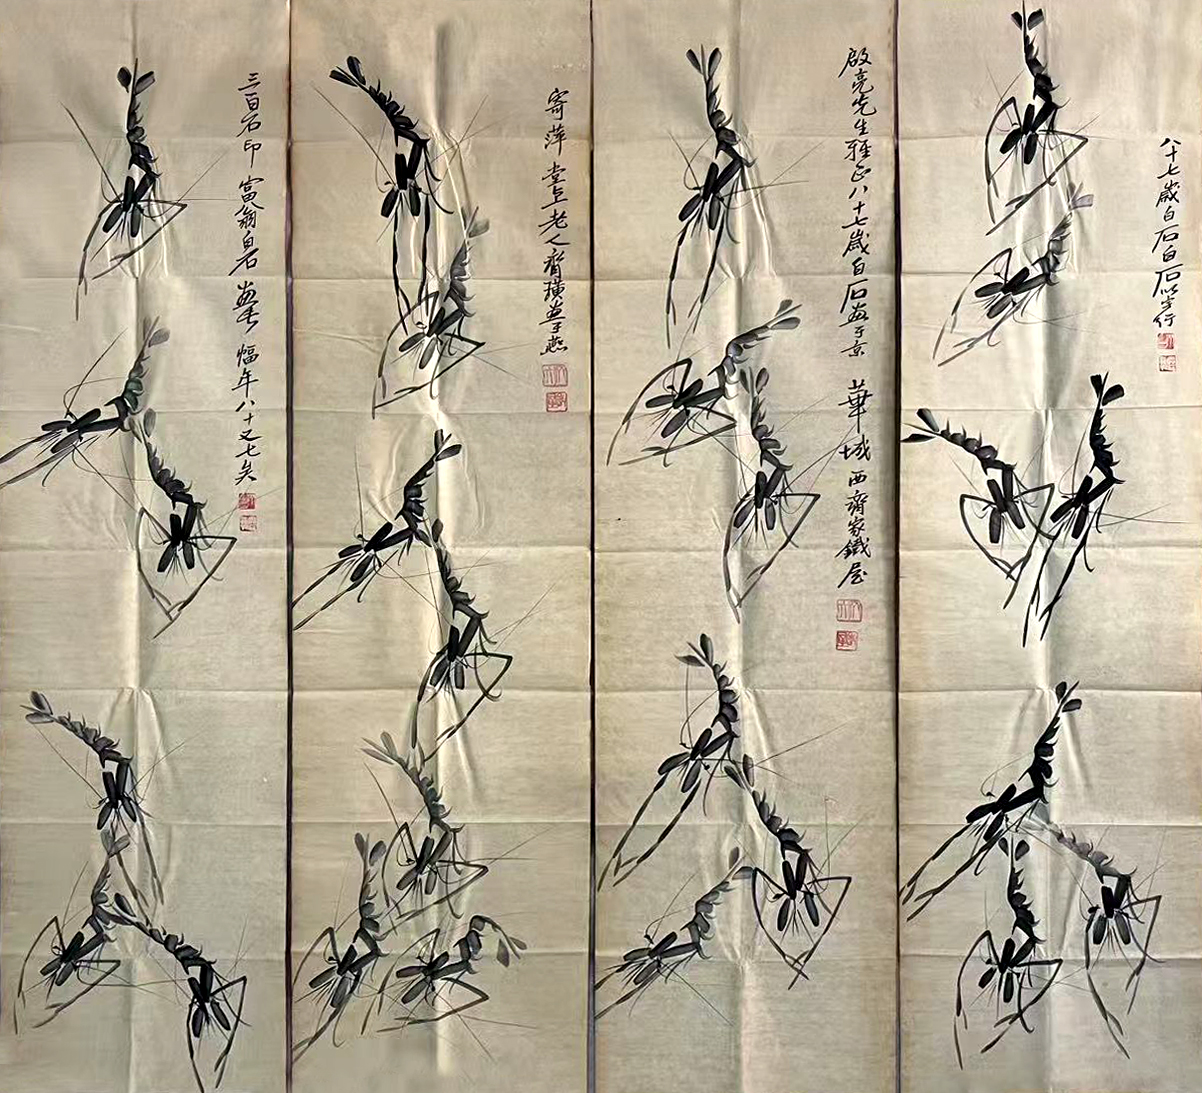 八十七歲白石白石以字行
啟亮先生雅正八十七歲白石畫于京華城西齊家鐵屋
寄萍堂上老人齊璜畫于燕
三百石印富翁白石畫幅年八十又七矣